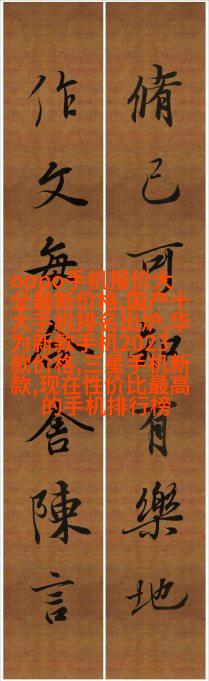 脩己可有樂地
作文每舍陳言
oppo手机报价大
全最新价格,国产十
大手机排名出炉,华
为新款手机2023
款价格,三星手机新
款,现在性价比最高
的手机排行榜